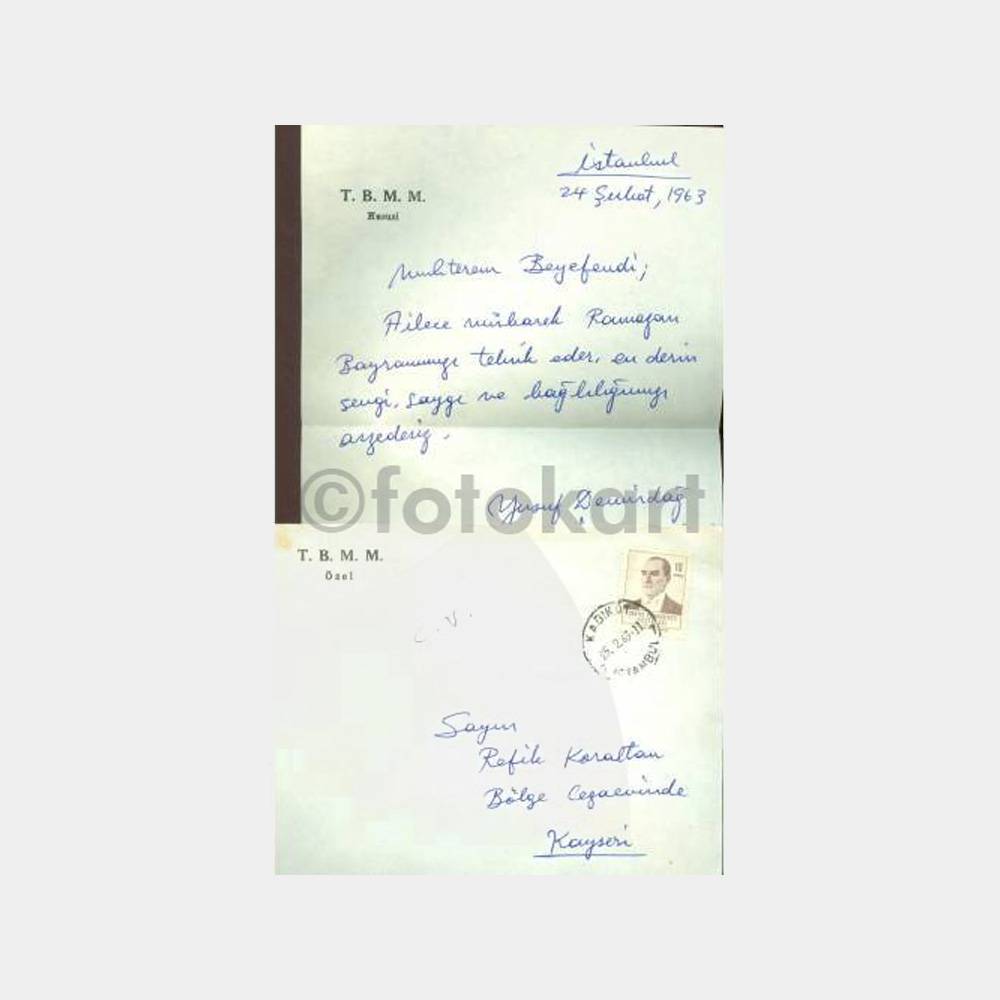 İstanbul
24 Şubat, 1963
T. B. M. M.
Hususi
Muhterem Beyefendi;
Ailece mübarek Ramazan
Bayramınızı tebrik eder, en derin
sevgi, saygı ve bağlılığımızı
arzederiz.
Yusuf Demirdağ
©fotokart
T. B. M. M.
Özel
C. V.
10
KADIKÖY
25.2.63-11
İSTANBUL
Sayın
Refik Koraltan
Bölge Cezaevinde
Kayseri